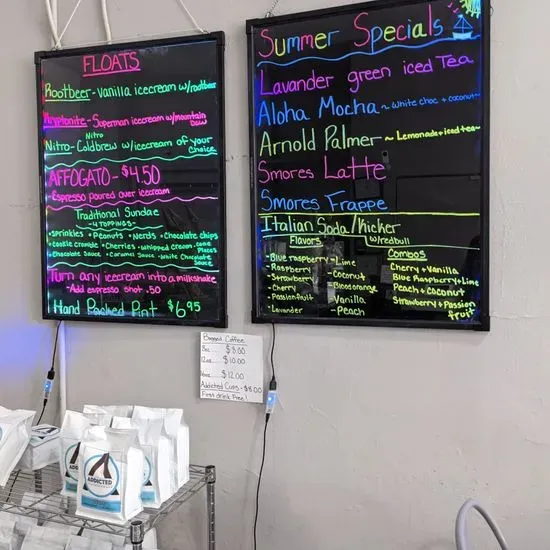 FLOATS
Rootbeer - Vanilla icecream w/rootbeer
Kryptonite - Superman icecream w/mountain Dew
Nitro
Nitro - Coldbrew w/icecream of your Choice
AFFOGATO - $4.50
- Espresso poured over icecream
Traditional Sundae
- 4 TOPPINGS -
• sprinkles • Peanuts • Nerds • Chocolate chips
• cookie crumble • Cherries • Whipped cream
• Chocolate Sauce • Caramel Sauce • White Chocolate Sauce
Turn any icecream into a milkshake
- Add espresso shot .50
Hand Packed Pint $6.95
Summer Specials
Lavander green iced Tea
Aloha Mocha ~ White choc + coconut~
Arnold Palmer ~ Lemonade + iced tea~
Smores Latte
Smores Frappe
Italian Soda/Kicker
w/redbull
Flavors
- Blue raspberry
- Raspberry
- Strawberry
- Cherry
- Passionfruit
- Lavender
- Lime
- Coconut
- Blood orange
- Vanilla
- Peach
Combos
Cherry + Vanilla
Blue Raspberry + Lime
Peach + Coconut
Strawberry + Passion fruit
Bagged Coffee
8oz $8.00
12oz $10.00
$12.00
Addicted Cups - $8.00
First drink Free!
ADDICTED